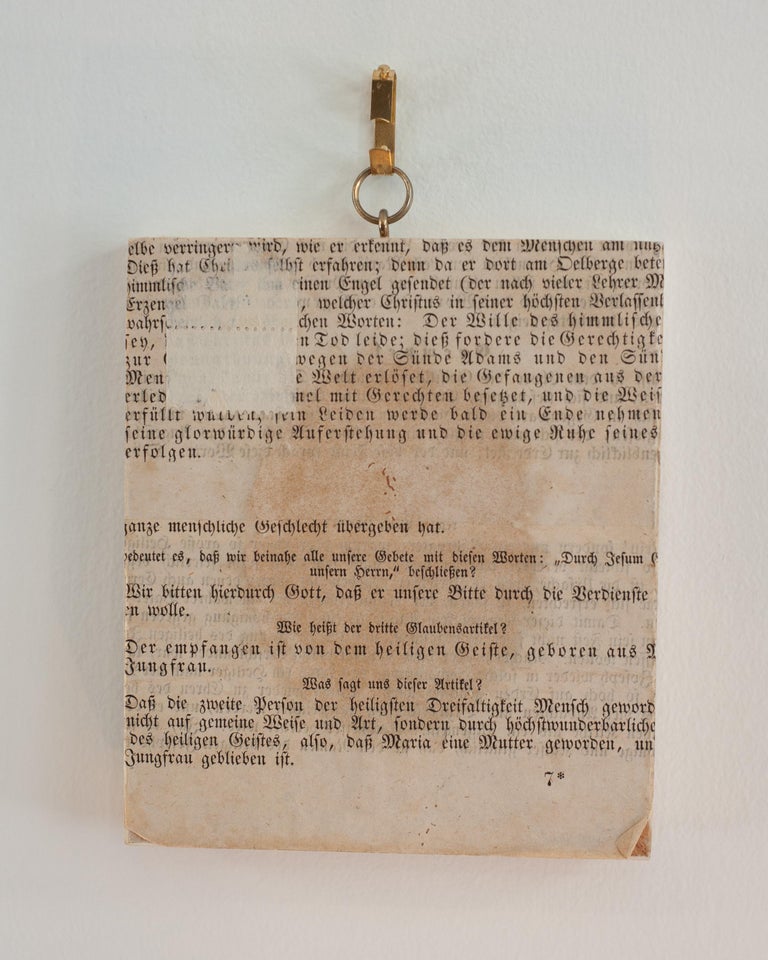 elbe verringert wird, wie er erkennt, daß es dem Menschen am
Dieß hat selbst erfahren; denn da er dort am Oelberge bete
einen Engel gesendet (der nach vieler Lehrer M
Erzen , welcher Christus in seiner höchsten Verlassen
chen Worten: Der Wille des himmlische
sey, n Tod leide; dieß fordere die Gerechtigke
zur wegen der Sünde Adams und den Sün
Men e Welt erlöset, die Gefangenen aus der
erled mel mit Gerechten besetzet, und die Weis
erfüllt sein Leiden werde bald ein Ende nehmen
seine glorwürdige Auferstehung und die ewige Ruhe seines
erfolgen.
ganze menschliche Geschlecht übergeben hat.
bedeutet es, daß wir beinahe alle unsere Gebete mit diesen Worten: „Durch Jesum
unsern Herrn,“ beschließen?
Wir bitten hierdurch Gott, daß er unsere Bitte durch die Verdienste
en wolle.
Wie heißt der dritte Glaubensartikel?
Der empfangen ist von dem heiligen Geiste, geboren aus
Jungfrau.
Was sagt uns dieser Artikel?
Daß die zweite Person der heiligsten Dreifaltigkeit Mensch geword
nicht auf gemeine Weise und Art, sondern durch höchstwunderbarliche
des heiligen Geistes, also, daß Maria eine Mutter geworden, un
Jungfrau geblieben ist.
7*